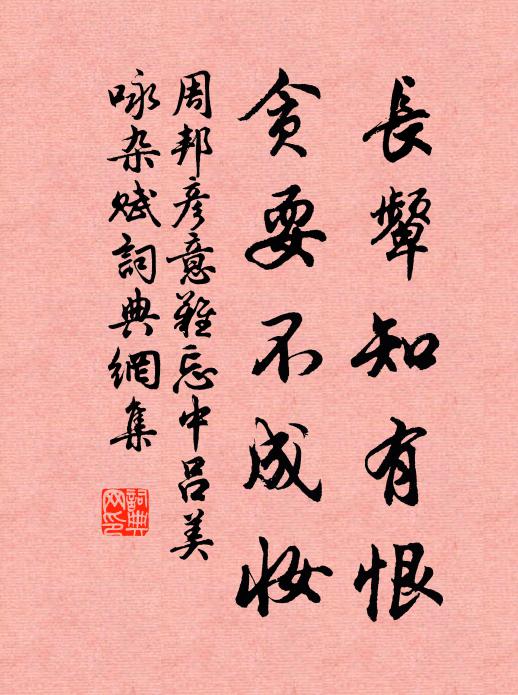 長顰知有恨
貪耍不成妝
周邦彥意難忘中吕美
咏杂赋詞典網集
詞典网印